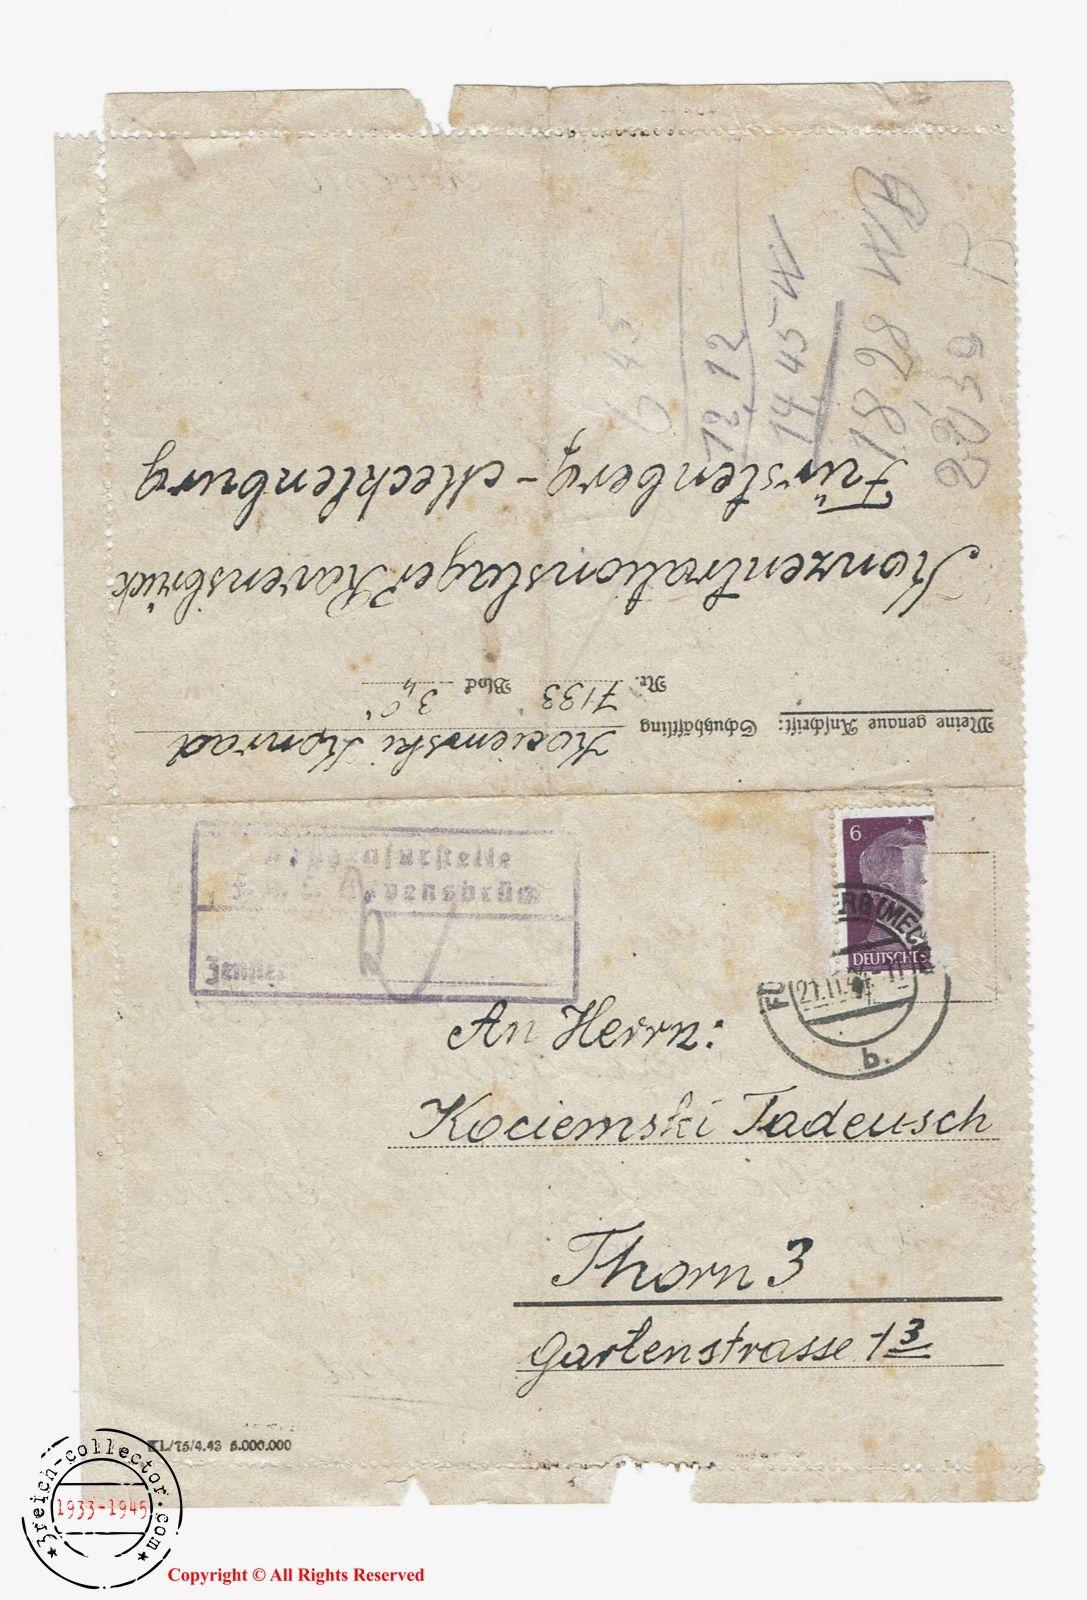 6 45
12.12
14.45 W
1898 WB
2239
Meine genaue Anschrift:
Schutzhäftling Kociemski Konrad
Nr. 7133 Block 3
Konzentrationslager Ravensbrück
Fürstenberg - Mecklenburg
6
DEUTSCHES
RG (MECK
21.11.4
b.
Zensor
An Herrn:
Kociemski Tadeusch
Thorn 3
Gartenstrasse 13
KL/75/4.43 5.000.000
3reich-collector.com
1933-1945
Copyright © All Rights Reserved